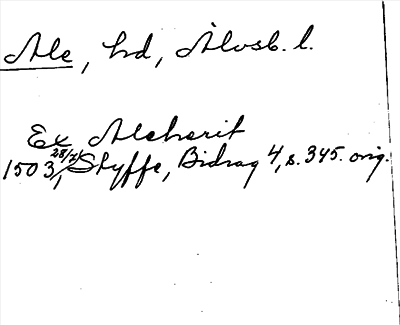 Ale, hd, Älvsb. l.
Ex Aleherit
1503 28/7, Styffe, Bidrag 4, s. 345. orig.